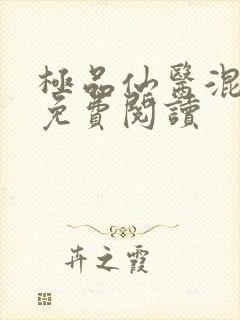 極品仙醫混
免費閱讀
卉之霞